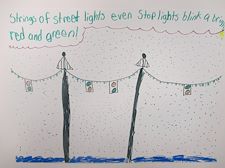 Strings of street lights even Stop lights blink a bright
red and green!